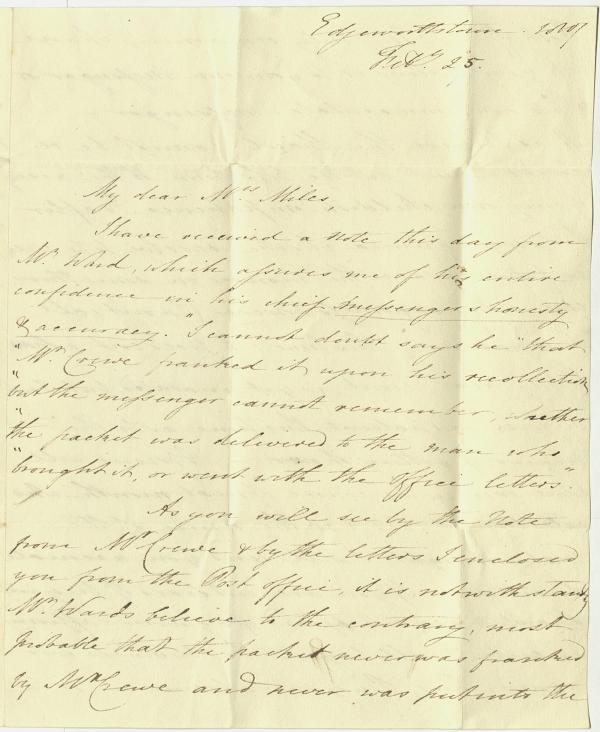 Edgeworthstown. 1809
Feby. 25.
My dear Mrs Miles,
I have received a Note this day from
Mr. Ward, which assures me of his entire
confidence in his chief messenger's honesty
& accuracy. "I cannot doubt" says he "that
"Mr. Crewe franked it upon his recollection
"but the messenger cannot remember, whether
"the packet was delivered to the man who
"brought it, or went with the Office letters".
As you will see by the Note
from Mr Crewe & by the letters I enclosed
you from the Post office, it is notwithstandg
Mr. Wards believe to the contrary, most
probable that the packet never was franked
by Mr Crewe and never was put into the